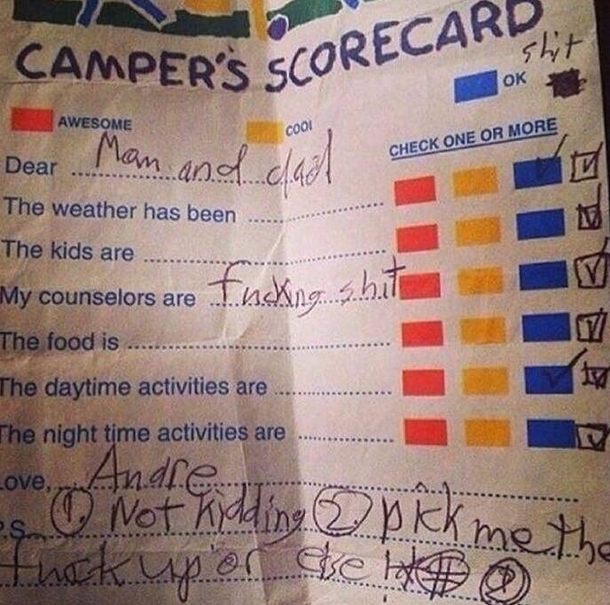 CAMPER'S SCORECARD
shit
OK
AWESOME
COOL
CHECK ONE OR MORE
Dear Mom and dad
The weather has been
The kids are
My counselors are fucking shit
The food is
The daytime activities are
The night time activities are
Love, Andre
P.S. ①. Not kidding ② pick me the
fuck up or else